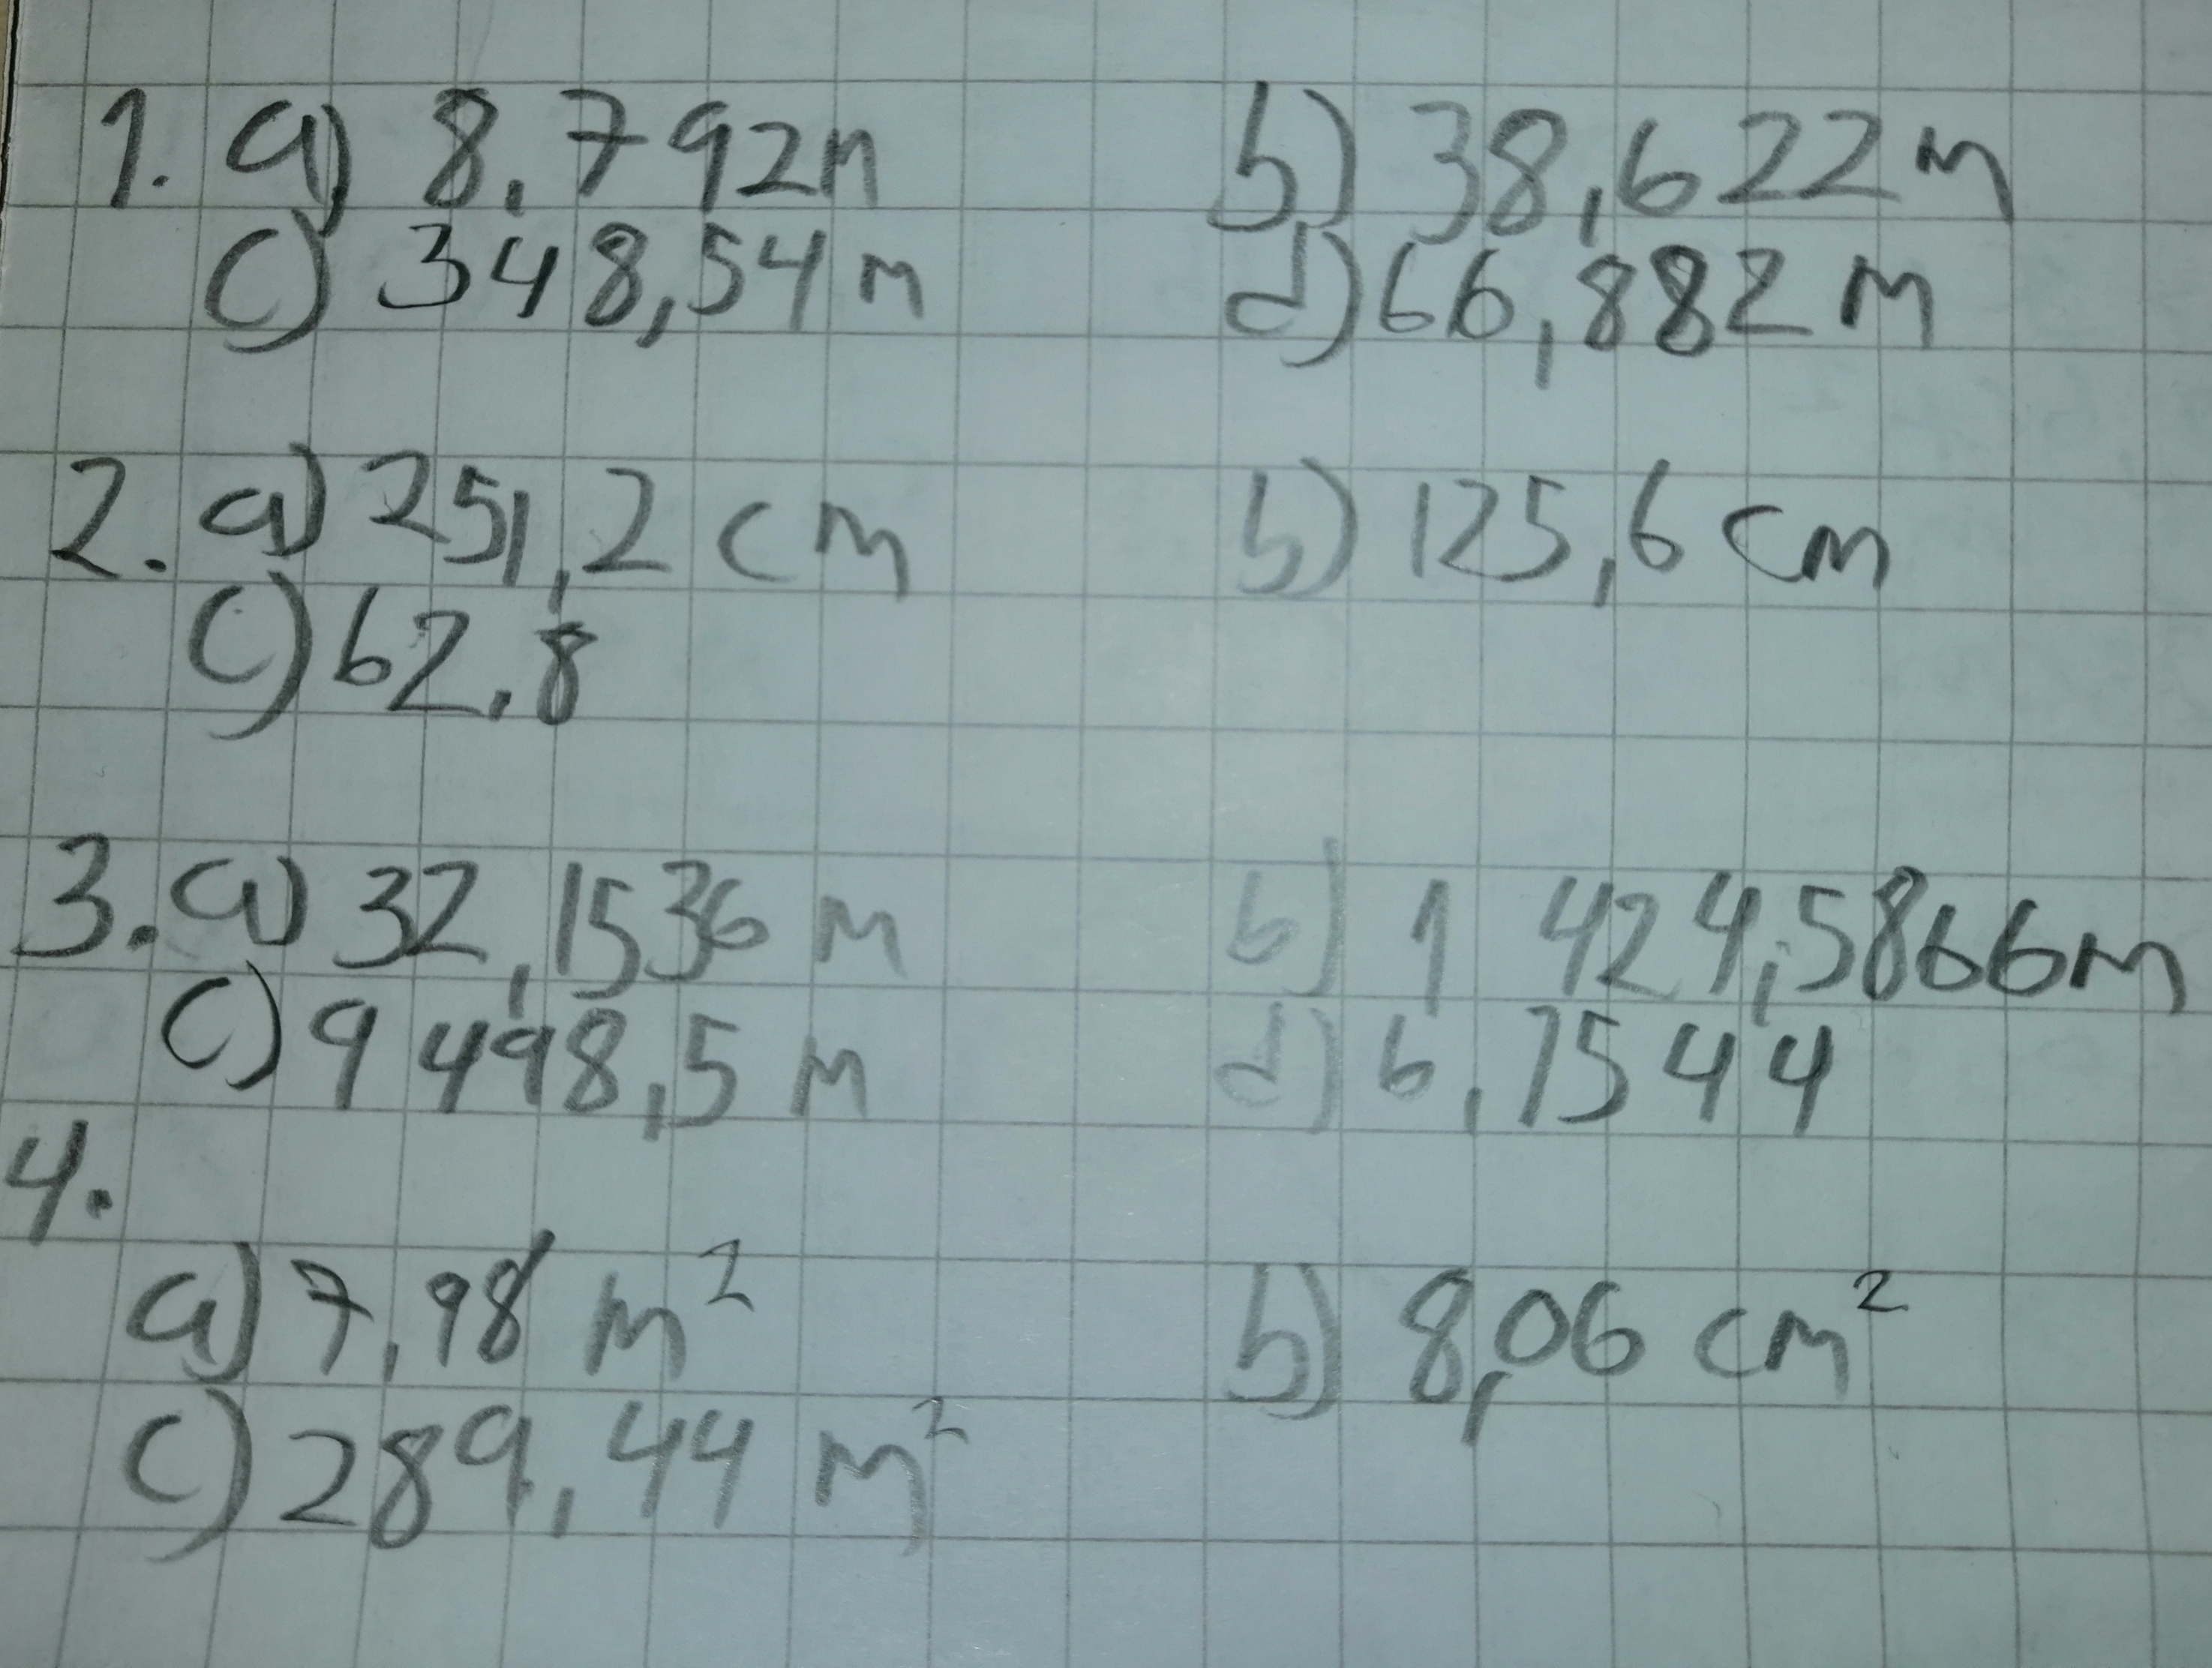 1. a) 8,792m b) 38,622m
c) 348,54m d) 66,882 m
2. a) 251,2 cm b) 125,6 cm
c) 62,8
3. a) 32,1536 m b) 1 424,5866m
c) 9 498,5 m d) 6,1544
4.
a) 7,98 m² b) 8,06 cm²
c) 289,44 m²